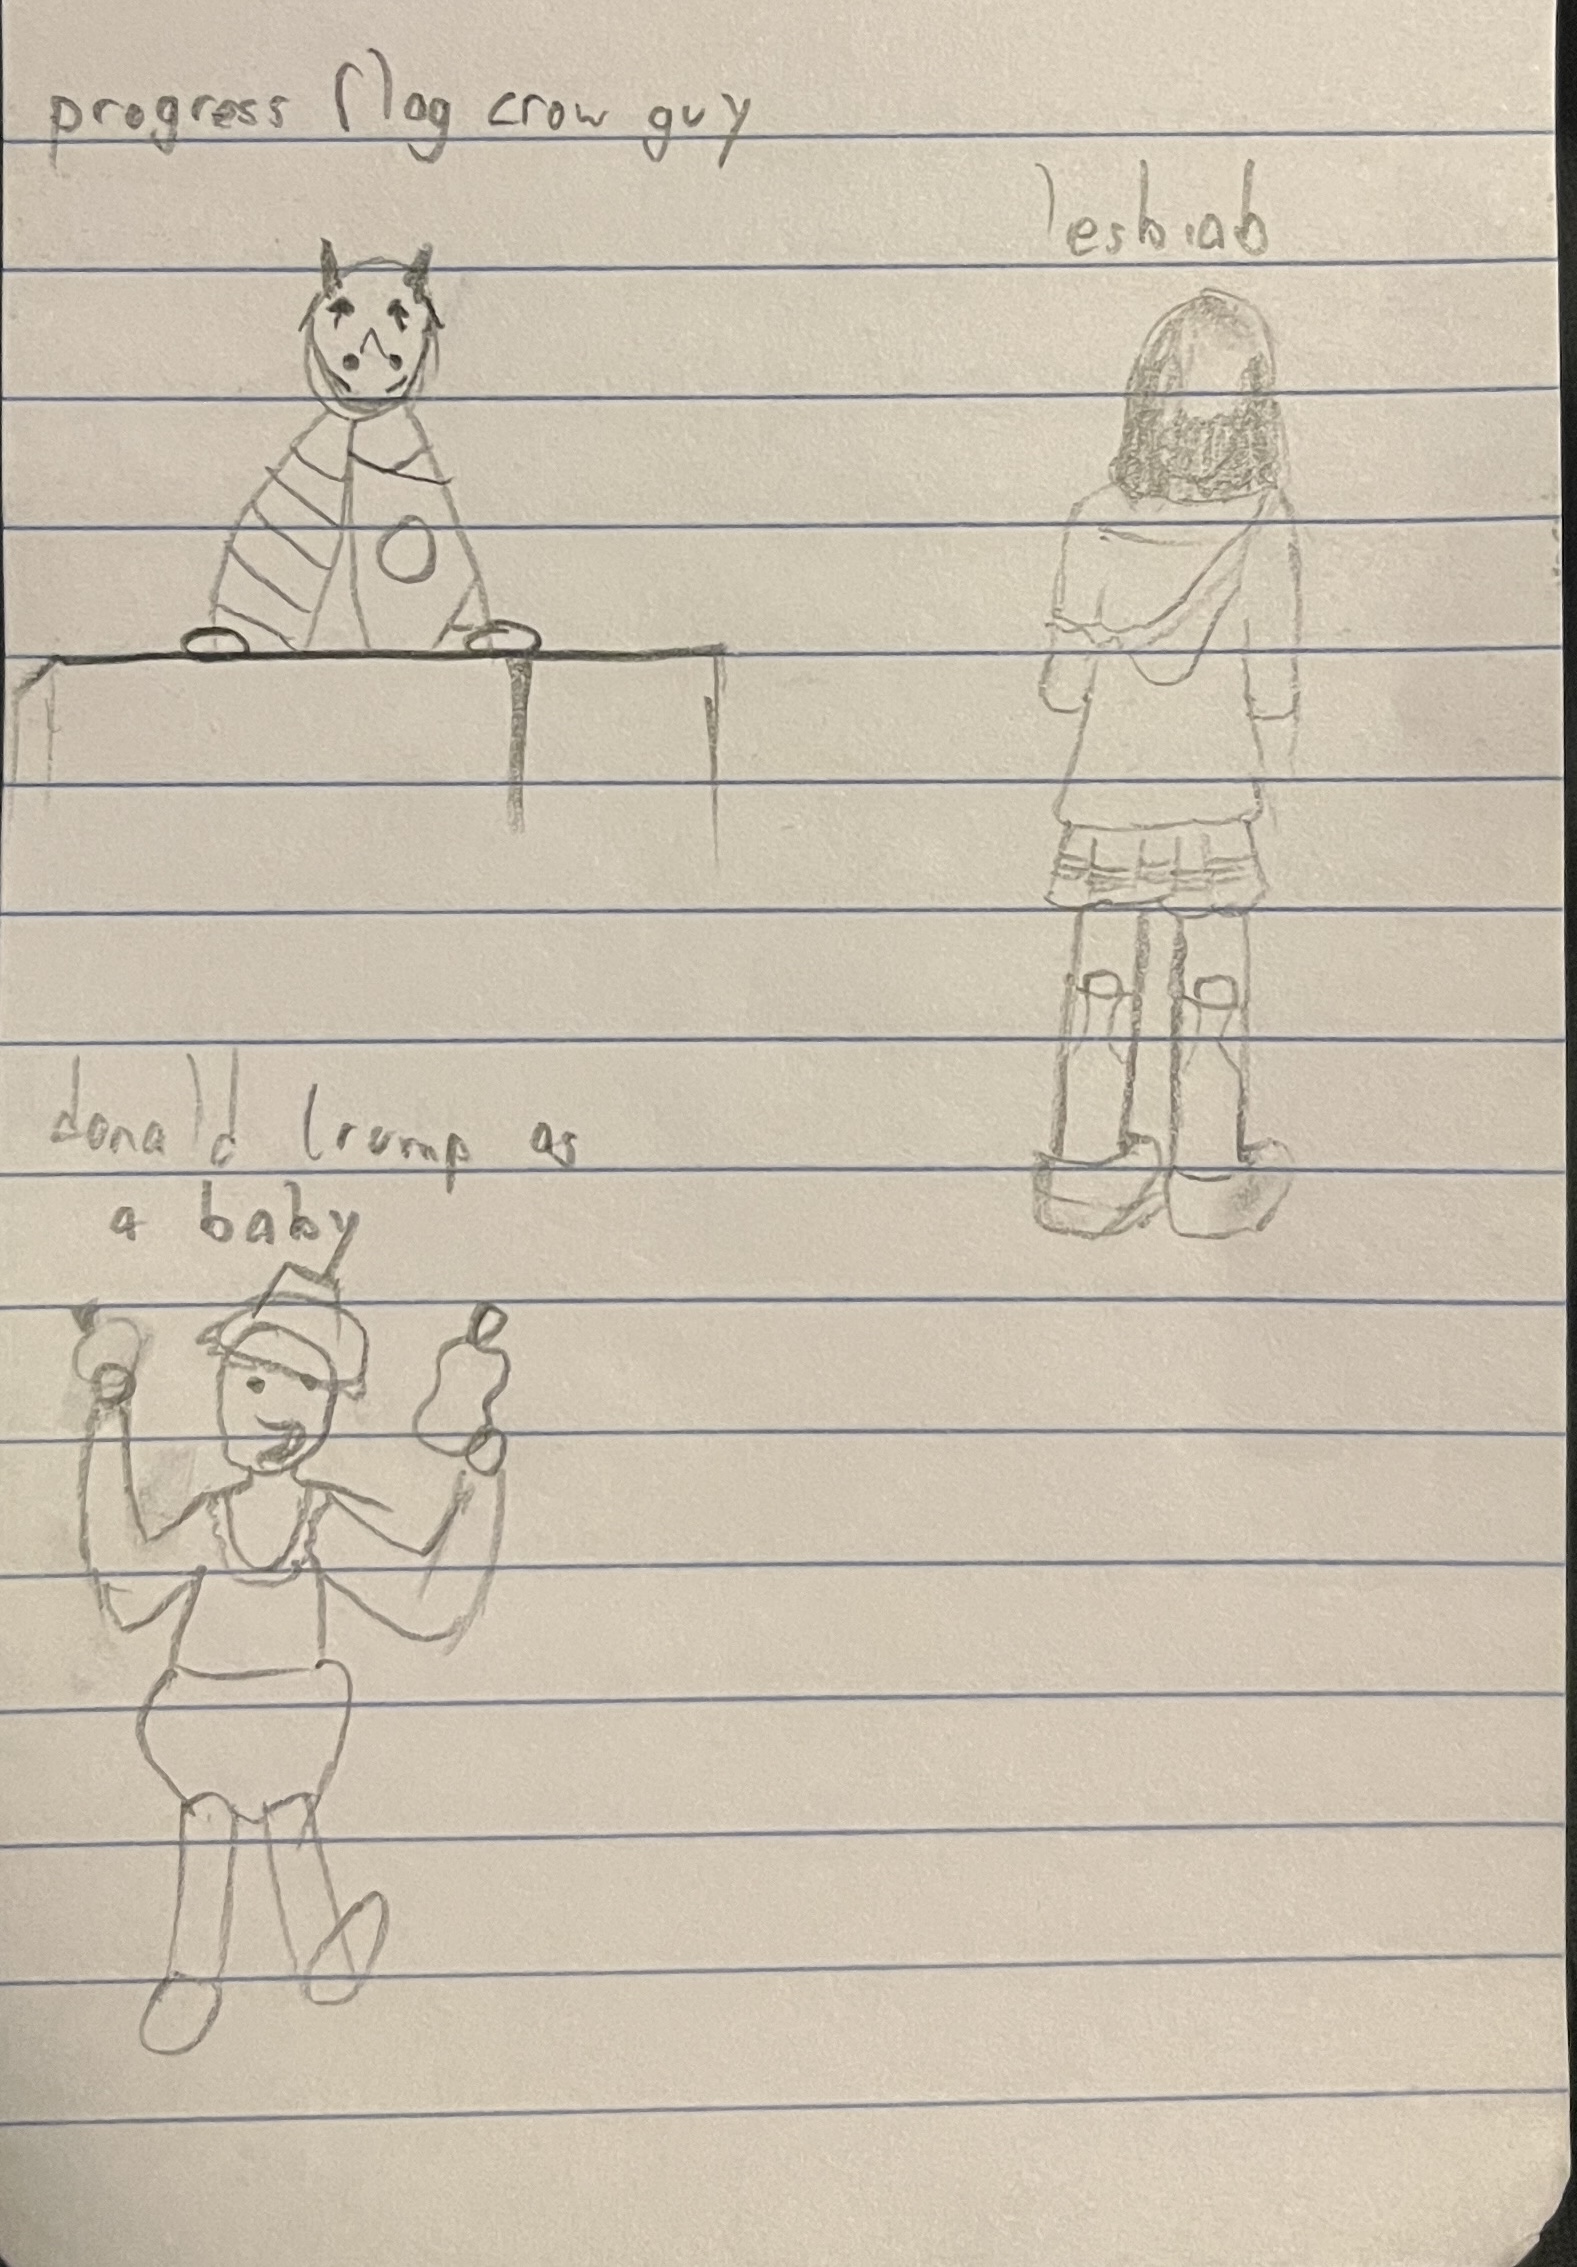 progress flag crow guy
lesbiab
donald trump as
a baby